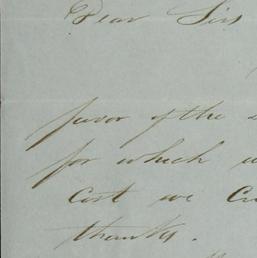 Dear Sirs
favor of the
for which
cost we
thanks.